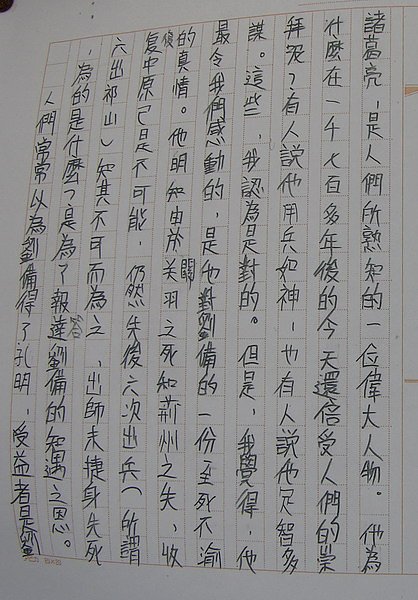 諸葛亮,是人們所熟知的一位偉大人物。他為
什麼在一千七百多年後的今天還倍受人們的崇
拜呢?有人說他用兵如神,也有人說他足智多
謀。這些,我認為是對的。但是,我覺得,他
最令我們感動的,是他對劉備的一份至死不渝
的真情。他明知由於關羽之死和荊州之失,收
復中原已是不可能,仍然先後六次出兵(所謂
六出祁山)知其不可而為之,出師未捷身先死
,為的是什麼?是為了報答劉備的知遇之恩。
人們常常以為劉備得了孔明,受益者是劉